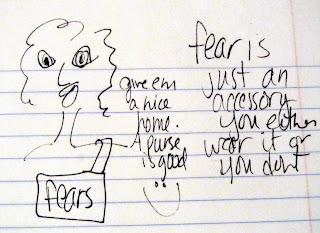 give em
a nice
home.
A purse
is good
fears
fear is
just an
accessory
you either
wear it or
you dont